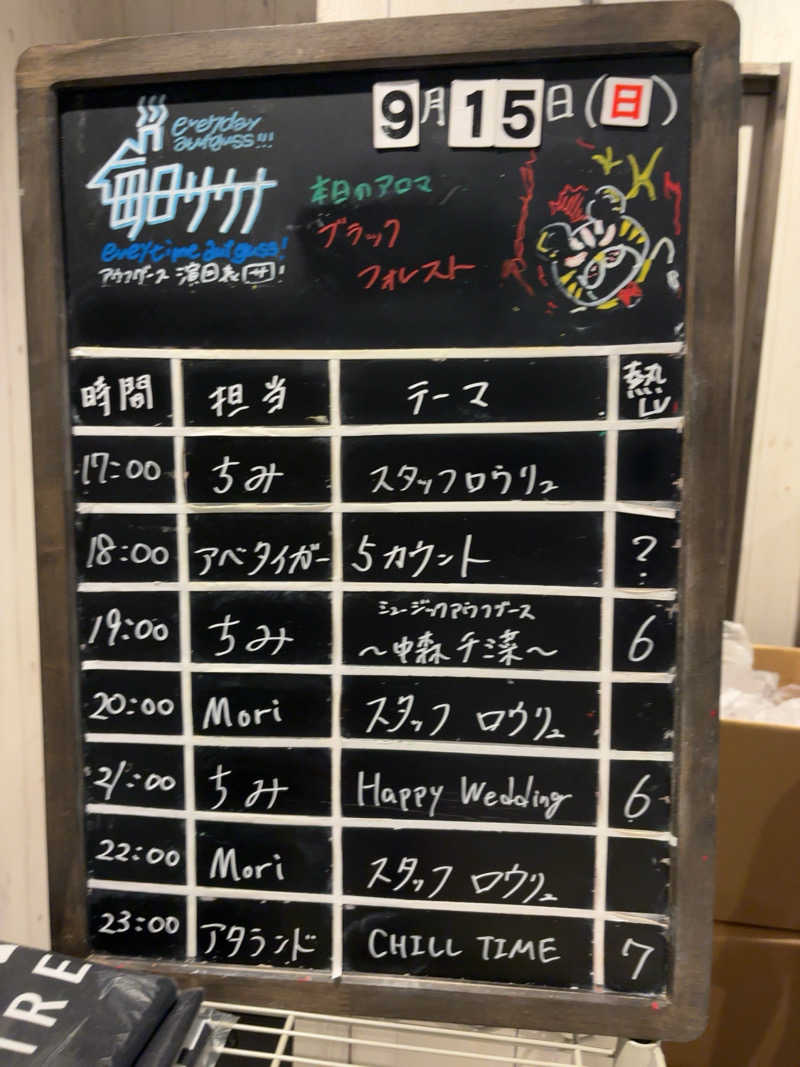 9月15日(日)
everyday
aufguss!!!
毎日サウナ
everytime aufguss!
本日のアロマ
ブラック
フォレスト
時間 担当 テーマ 熱LV
17:00 ちみ スタッフロウリュ
18:00 アベタイガー 5カウント ?
19:00 ちみ ミュージックアウフグース
～中森チ三菜～ 6
20:00 Mori スタッフ ロウリュ
21:00 ちみ Happy Wedding 6
22:00 Mori スタッフ ロウリュ
23:00 アタランド CHILL TIME 7
IRE